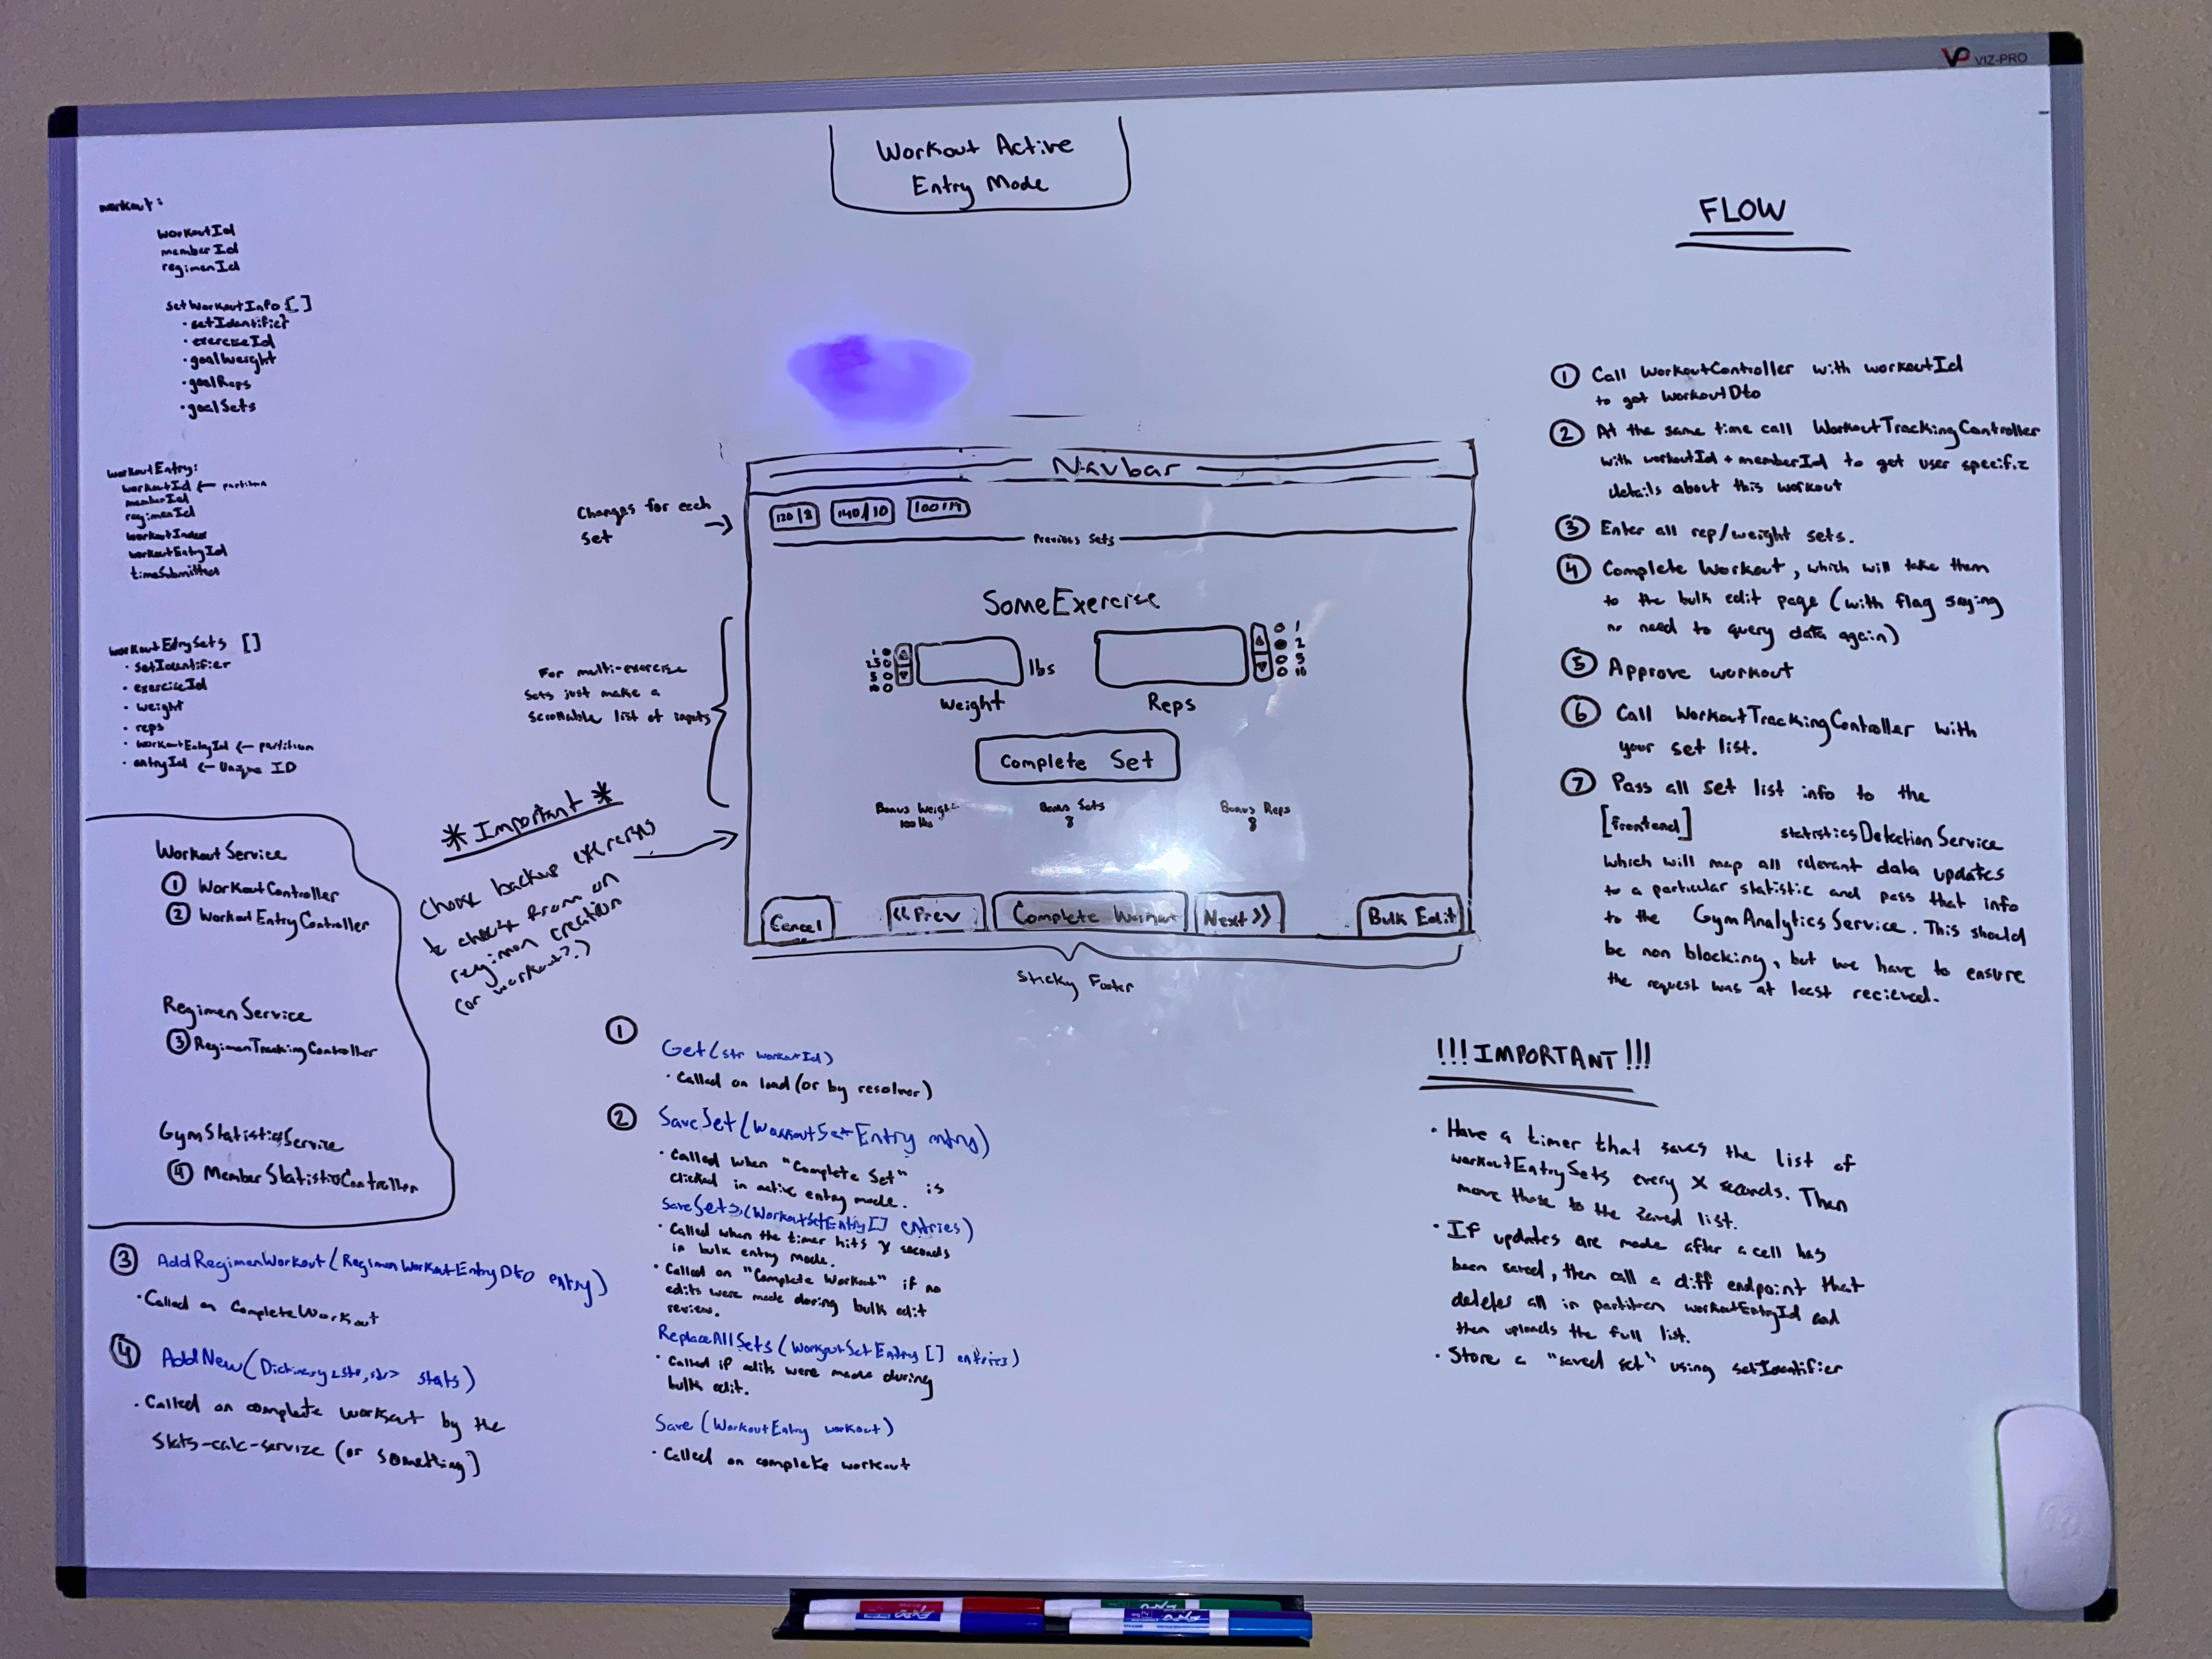 VP VIZ-PRO
Workout Active
Entry Mode
workout:
workoutId
memberId
regimenId
setWorkoutInfo []
• setIdentifier
• exerciseId
• goalWeight
• goalReps
• goalSets
workoutEntry:
workoutId ← partition
memberId
regimenId
workoutIndex
workoutEntryId
timeSubmitted
workoutEntrySets []
• setIdentifier
• exerciseId
• weight
• reps
• workoutEntryId ← partition
• entryId ← Unique ID
Workout Service
① WorkoutController
② WorkoutEntryController
Regimen Service
③ RegimenTrackingController
GymStatisticsService
④ MemberStatisticController
③ AddRegimenWorkout(RegimenWorkoutEntryDto entry)
• Called on CompleteWorkout
④ AddNew(Dictionary<str,str> stats)
• Called on complete workout by the
stats-calc-service (or something)
Changes for each
set
For multi-exercise
sets just make a
scrollable list of inputs
* Important *
Choose backup
to choose from on
regimen creation
(or workout?)
Navbar
120|8
140/10
100/14
Previous Sets
SomeExercise
1
2.5
5
10
lbs
Weight
1
2
5
10
Reps
Complete Set
Bonus Weight
100 lbs
Bonus Sets
8
Bonus Reps
8
Cancel
<< Prev
Complete Workout
Next >>
Bulk Edit
Sticky Footer
①
Get(str workoutId)
• Called on load (or by resolver)
② SaveSet(WorkoutSetEntry entry)
• Called when "Complete Set" is
clicked in active entry mode.
SaveSets(WorkoutSetEntry[] entries)
• Called when the timer hits X seconds
in bulk entry mode.
• Called on "Complete Workout" if no
edits were made during bulk edit
review.
ReplaceAllSets(WorkoutSetEntry[] entries)
• Called if edits were made during
bulk edit.
Save (WorkoutEntry workout)
• Called on complete workout
FLOW
① Call WorkoutController with workoutId
to get WorkoutDto
② At the same time call WorkoutTrackingController
with workoutId + memberId to get user specific
details about this workout
③ Enter all rep/weight sets.
④ Complete Workout, which will take them
to the bulk edit page (with flag saying
no need to query data again)
⑤ Approve workout
⑥ Call WorkoutTrackingController with
your set list.
⑦ Pass all set list info to the
[Frontend] statisticsDetectionService
which will map all relevant data updates
to a particular statistic and pass that info
to the GymAnalyticsService. This should
be non blocking, but we have to ensure
the request was at least recieved.
!!!IMPORTANT!!!
• Have a timer that saves the list of
workoutEntrySets every X seconds. Then
move those to the saved list.
• If updates are made after a cell has
been saved, then call a diff endpoint that
deletes all in partition workoutEntryId and
then uploads the full list.
• Store a "saved set" using setIdentifier